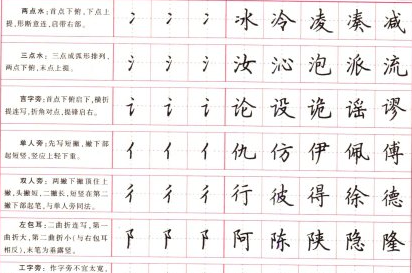 两点水:首点下俯,下点上提,形断意连,启带右部。
冫 冫 冫 冰 冷 凌 凑 减
三点水:三点成弧形排列,两点下俯,末点上提。
氵 氵 氵 汝 沁 泡 派 流
言字旁:首点下俯启下,横折提连写,折角对点,提锋启右。
讠 讠 讠 论 设 诡 谣 谬
单人旁:先写短撇,撇下部起短竖,竖应上轻下重。
亻 亻 亻 仇 仿 伊 佩 傅
双人旁:两撇下撇顶住上撇,头撇短,二撇长,短竖在第二撇下部起笔,与单人旁同法。
彳 彳 彳 行 彼 得 徐 德
左包耳:二曲折连写,第一曲折大,第二曲折小(与右包耳相反),末笔为垂露竖。
阝 阝 阝 阿 陈 陕 隐 隆
工字旁:作字旁不宜太宽,